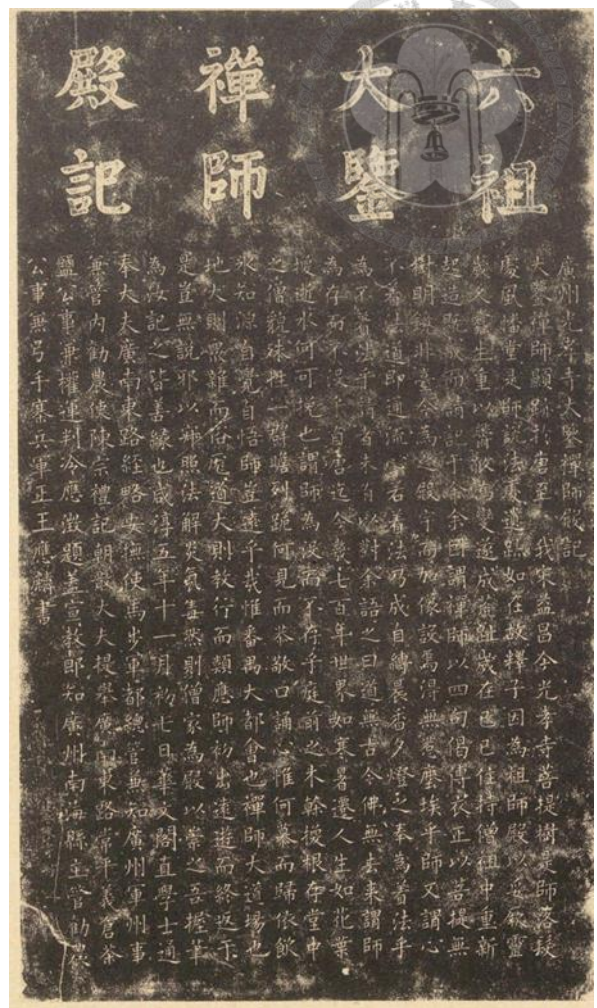 六祖
大鑒
禪師
殿記
廣州光孝寺大鑒禪師殿記
大鑒禪師顯跡於唐至我宋益昌今光孝寺菩提樹是師落髮
處風幡堂是師說法處遺蹤如在故釋子因為祖師殿以妥欽靈
歲久生重以成歲在己巳住持僧祖中重新
起造既成而請記于余余因謂禪師以四句偈傳衣正以菩提無
樹明鏡非臺今為之殿宇而加像設焉得無惹塵埃乎師又謂心
不着法道即通流若着法乃成自縛晨香夕燈之奉為着法乎
為不着法乎請者未有以對余語之曰道無古今佛無去來謂師
為存而不沒自唐迄今幾七百年世界如寒暑遷人生如花葉
墜逝水何可挽也謂師為沒而不存乎庭前之木幹換根存堂中
之僧貌殊性一對瞻列跪何見而恭敬口誦心惟何慕而歸依飲
水知源自覺自悟師豈遠乎哉惟番禺大都會也禪師大道場也
地大則眾雜而俗厖道大則教行而類應師初出遠遊而終返于
是豈無說邪以照法解炎氣毒則僧家為殿以崇之吾握筆
為汝記之皆善緣也咸淳五年十一月初七日華文閣直學士通
奉大夫廣南東路經略安撫使馬步軍都總管兼知廣州軍州事
兼管內勸農使陳宗禮記朝大夫提舉廣南東路常平義倉茶
鹽公事兼權運判冷應澂題蓋宣教郎知廣州南海縣主管勸農
公事兼弓手寨兵軍正王應麟書